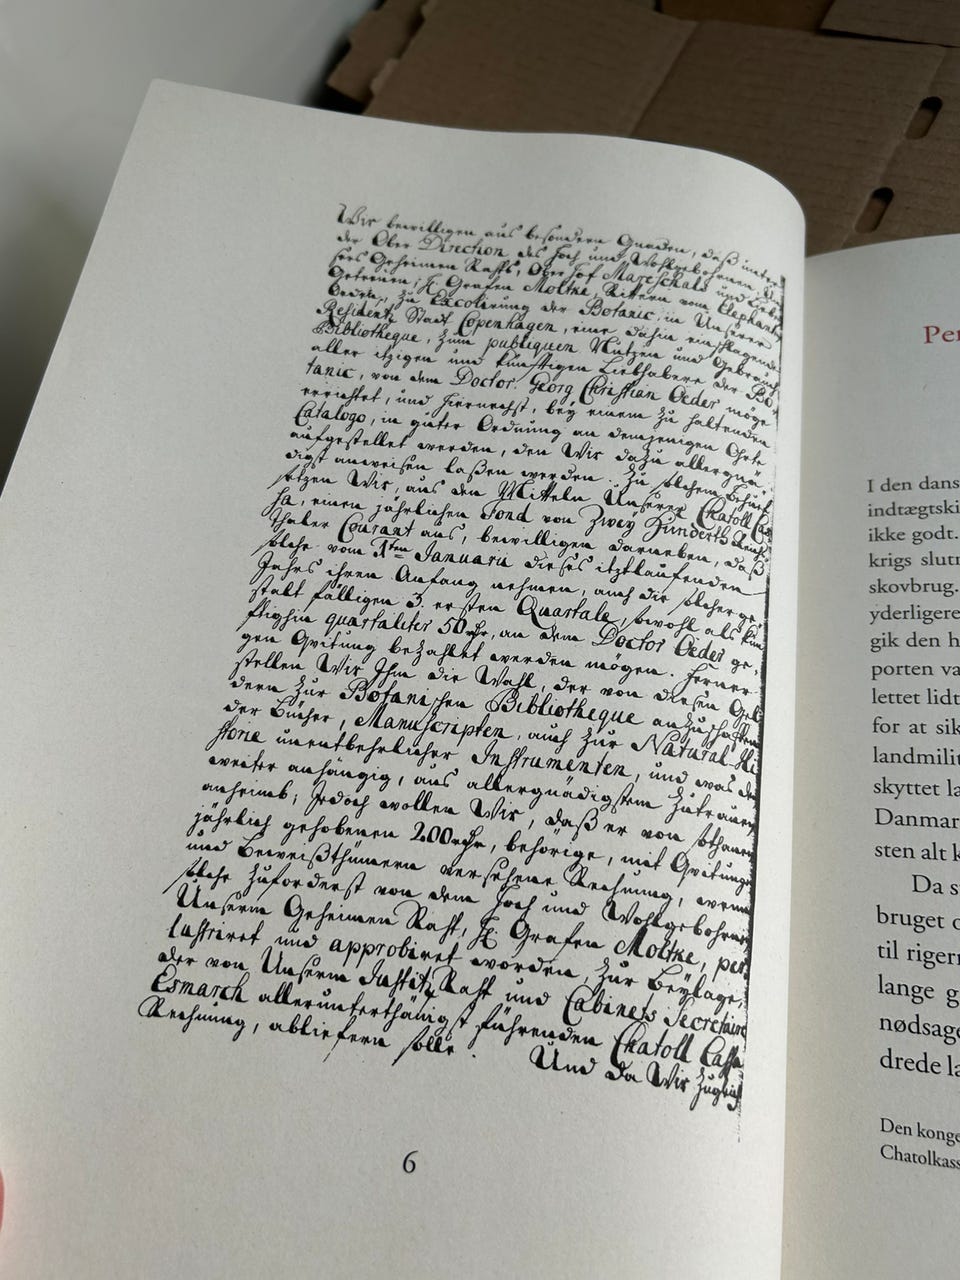 Wir bewilligen aus besondern Gnaden, daß unter
der Ober Direction des Hoch und Wohlgebohrnen, Un
sers Geheimen Rahts, Ober Hof Mareschals und Lieben
Getreuen, H. Grafen Moltke, Rittern vom Elephanten
Orden, zu Excolirung der Botanic, in Unserer
Residentz Stadt Copenhagen, eine dahin einschlagende
Bibliotheque, zum publiquen Nutzen und Gebrauch
aller itzigen und künfftigen Liebhabere der Bo
tanic, von dem Doctor Georg Christian Oeder möge
errichtet, und hiernechst, bey einem zu haltenden
Catalogo, in guter Ordnung an demjenigen Ohrte
aufgestellet werden, den Wir dazu allergnä
digst anweisen laßen werden. Zu solchem Behuf
setzen Wir, aus den Mitteln Unserer Chatoll Cas
sa, einen jährlichen Fond von Zwey Hunderth Reichs
Thaler Courant aus, bewilligen darneben, daß
solche vom 1ten Januarii dieses itztlaufenden
Jahrs ihren Anfang nehmen, auch die solcher ge
stalt fälligen 3. ersten Quartale, sowohl als kün
fftighin quartaliter 50 rthr, an dem Doctor Oeder ge,
gen Qvitung bezahlet werden mögen. Ferner
stellen Wir Ihm die Wahl, der von diesen Gel
dern zur Botanischen Bibliotheque anzuschaffen
der Bücher, Manuscripten, auch zur Natural-Hi
storie unentbehrlicher Instrumenten, und was dem
weiter anhängig, aus allergnädigstem Zutrauen
anheimb; Jedoch wollen Wir, daß er von sothanen
jährlich gehobenen 200 rthr, behörige, mit Qvitungen
und Beweißthümern versehene Rechnung, wenn
solche zuforderst von dem Hoch und Wohlgebohrnen
Unserm Geheimen Raht, H. Grafen Moltke, per
lustriret und approbiret worden, zur Beylage,
der von Unserm Justitz Raht und Cabinets Secretaire
Esmarch allerunterthänigst führenden Chatoll Cassa
Rechnung, abliefern solle. Und da Wir zugleich
6
Per
I den dans
indtægtski
ikke godt.
krigs slutn
skovbrug.
yderligere
gik den h
porten va
lettet lidt
for at sik
landmilit
skyttet la
Danmar
sten alt k
Da s
bruget o
til riger
lange g
nødsage
drede la
Den konge
Chatolkass